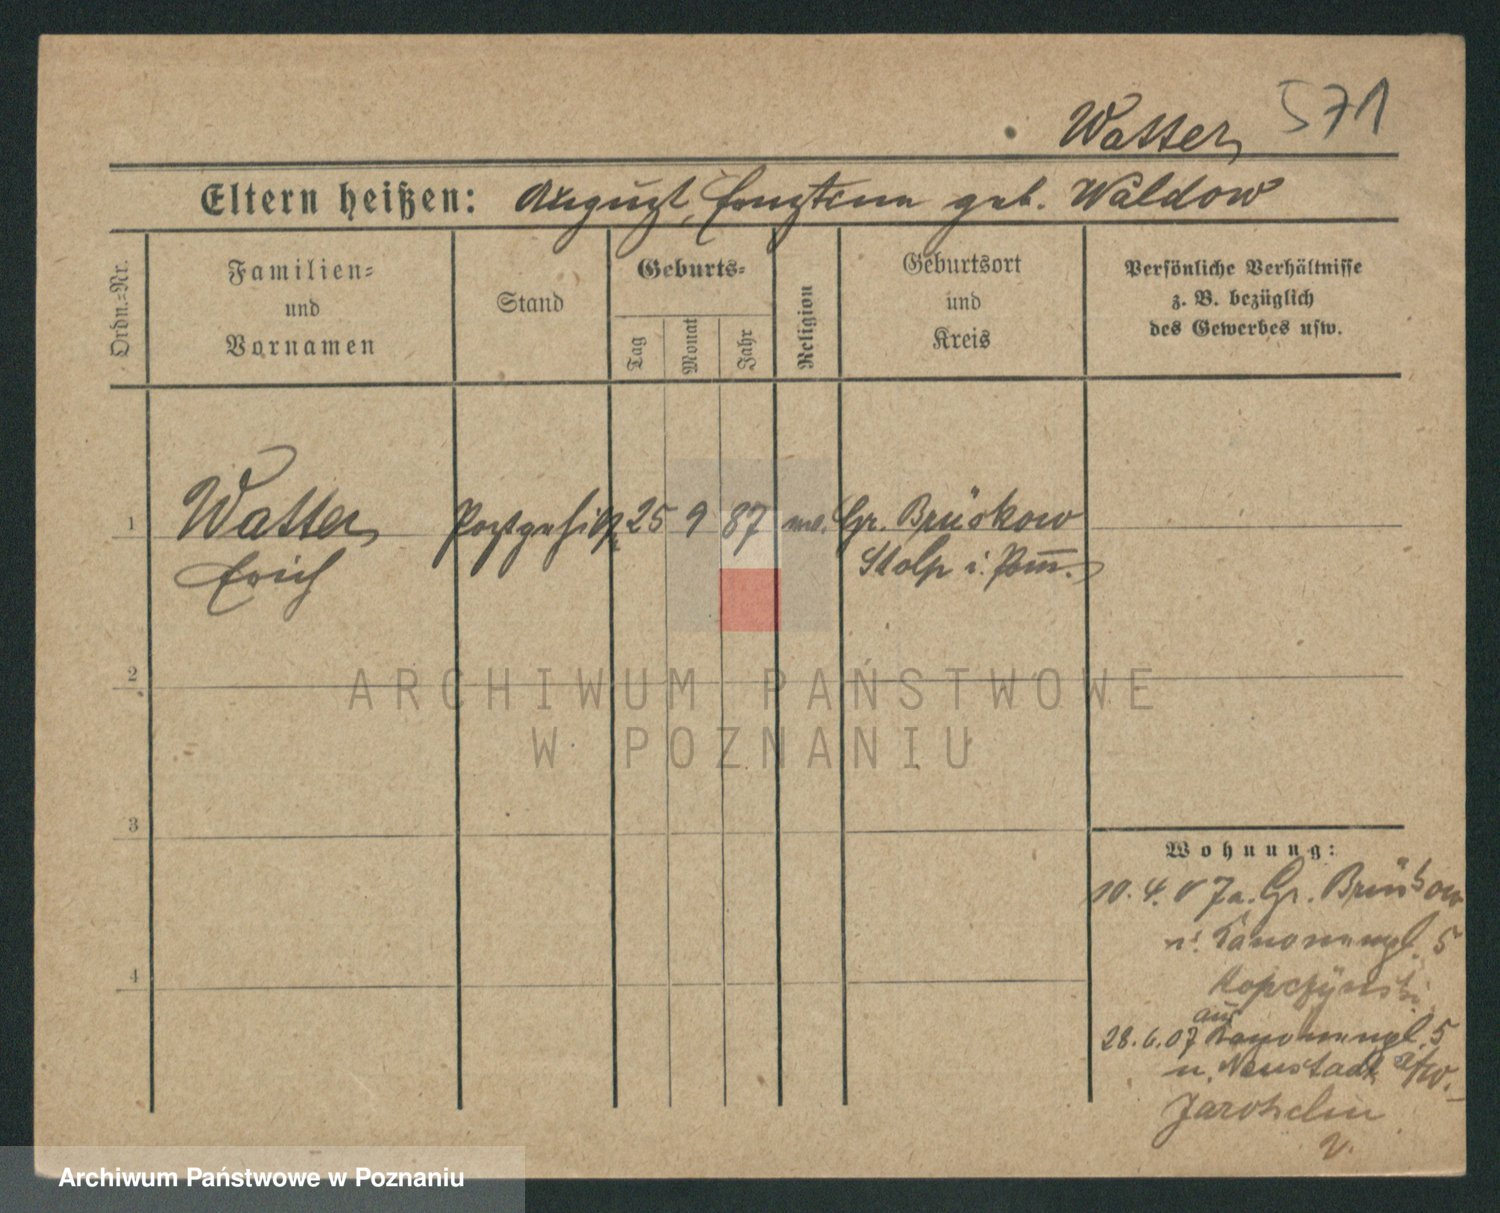 Watter
571
Eltern heißen: August, Ernstine geb. Waldow
Ordn.=Nr.
Familien=
und
Vornamen
Stand
Geburts=
Tag
Monat
Jahr
Religion
Geburtsort
und
Kreis
Persönliche Verhältnisse
z. B. bezüglich
des Gewerbes usw.
1
Watter
Erich
Postgehilfe
25
9
87
ev.
Gr. Brüskow
Stolp i. Pom.
2
3
4
Wohnung:
10. 4. 07 a. Gr. Brüskow
n. Kanonenpl. 5
Kopczynski
aus
28. 6. 07 Kanonenpl. 5
n. Neustadt a/W.
Jarotschin
ARCHIWUM PAŃSTWOWE
W POZNANIU
Archiwum Państwowe w Poznaniu